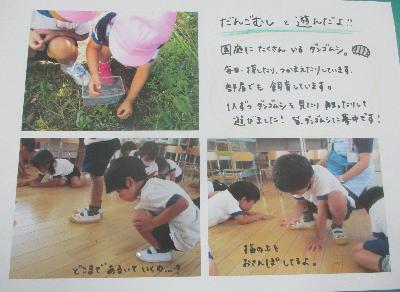 だんごむしと遊んだよ!!
園庭にたくさんいるダンゴムシ。
毎日、探したり、つかまえたりしています。
部屋でも飼育しています。
1人ずつダンゴムシを見たり触ったりして
遊びました! 皆、ダンゴムシに夢中です!
どこまであるいていくの…?
指の上を
おさんぽしてるよ。